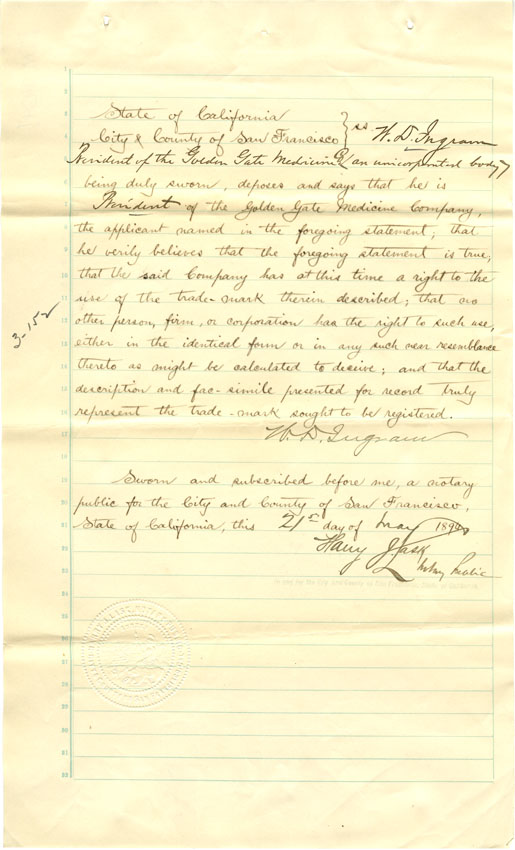 State of California
City & County of San Francisco } ss W. D. Ingram
President of the Golden Gate Medicine Co an unicorporated body
being duly sworn, deposes and says that he is
President of the Golden Gate Medicine Company,
the applicant named in the foregoing statement; that
he verily believes that the foregoing statement is true;
that the said Company has at this time a right to the
use of the trade-mark therein described; that no
other person, firm, or corporation has the right to such use,
either in the identical form or in any such near resemblance
thereto as might be calculated to deceive; and that the
description and fac-simile presented for record truly
represent the trade-mark sought to be registered.
W. D. Ingram
Sworn and subscribed before me, a notary
public for the City and County of San Francisco,
State of California, this 21st day of May
Harry J. Lask
Notary Public
In and for the City and County of San Francisco, State of California.
3-152